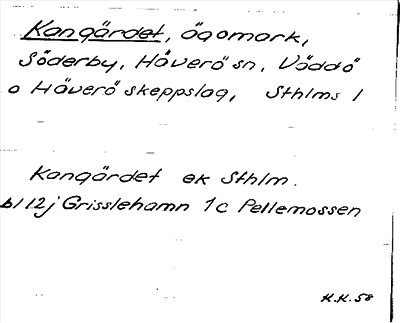 Kangärdet, ägomark,
Söderby, Häverö sn, Väddö
o Häverö skeppslag, Sthlms l
Kangärdet ek Sthlm.
bl 12j Grisslehamn 1c Pellemossen
K.K. 58